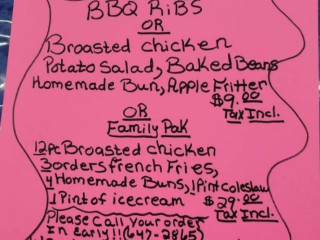 BBQ RiBS
OR
Broasted chicken
Potato Salad, Baked Beans
Homemade Bun, Apple Fritter
$9.00
Tax Incl.
OR
Family Pak
12pc Broasted chicken
3orders french Fries,
4 Homemade Buns, 1Pint coleslaw
1 Pint of icecream $29.00
Tax Incl.
Please Call your order
In early!! (647-2865)